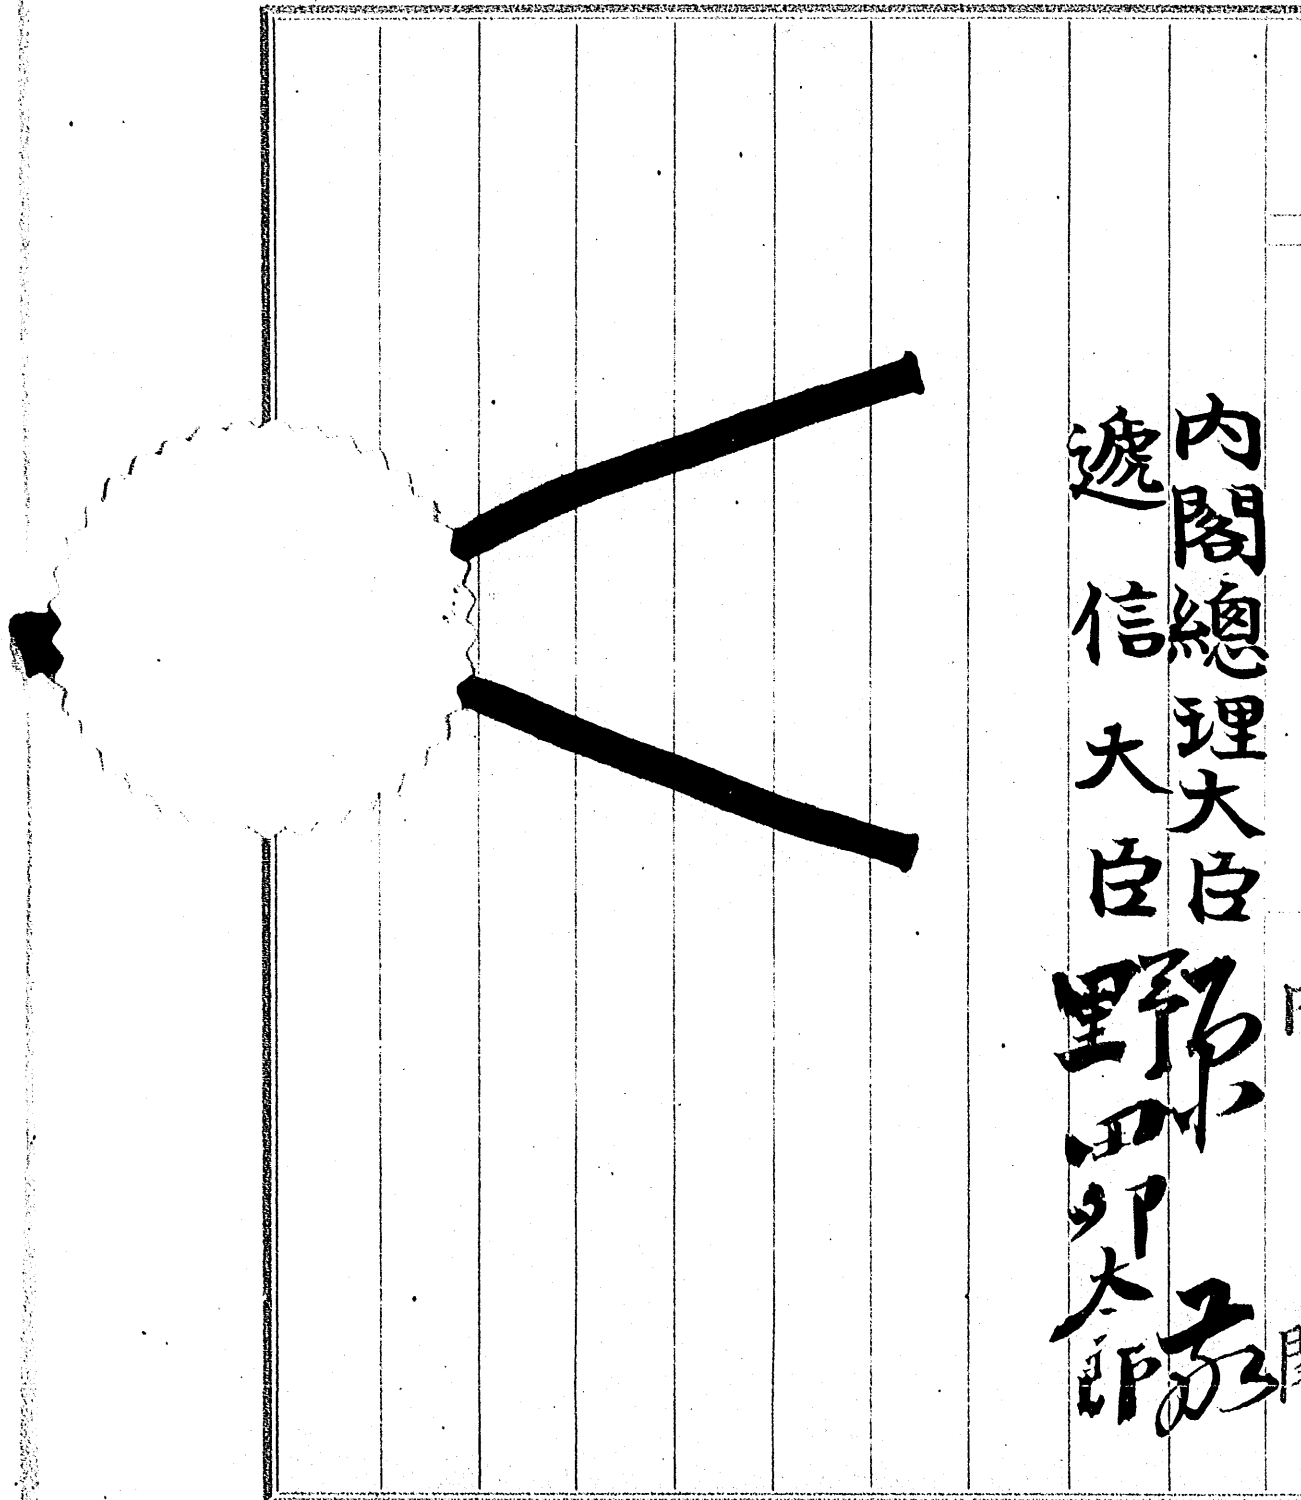 内閣總理大臣 原 敬
遞信大臣 野田卯太郎